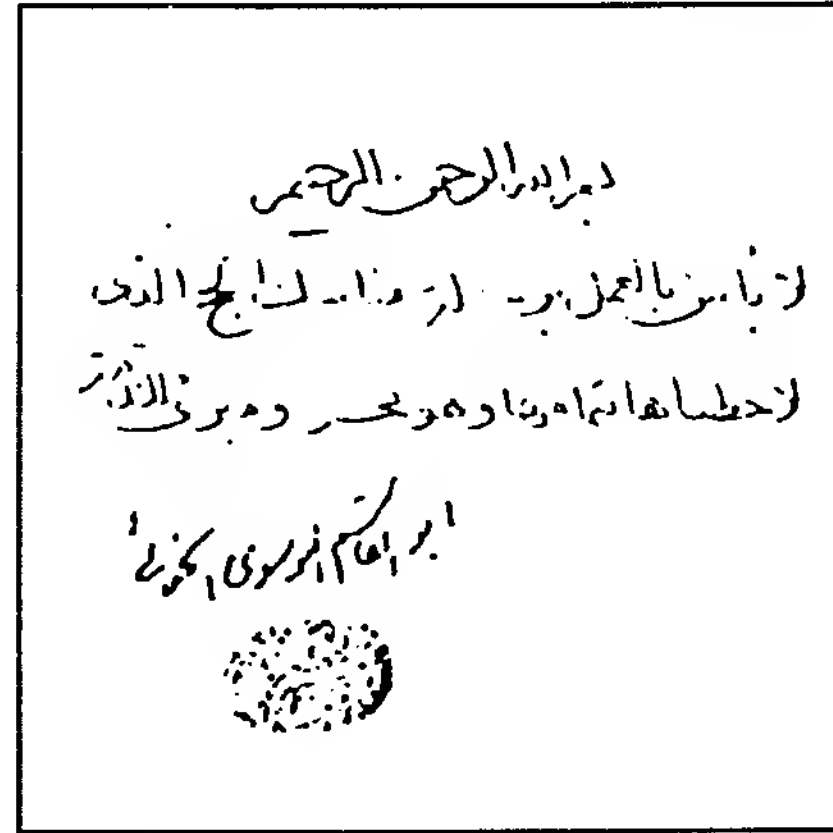 بسم الله الرحمن الرحيم
لا بأس بالعمل برسالة مناسك الحج التي
لاحظناها بتمامها وهو مجز ومبرئ للذمة
ابو القاسم الموسوي الخوئي